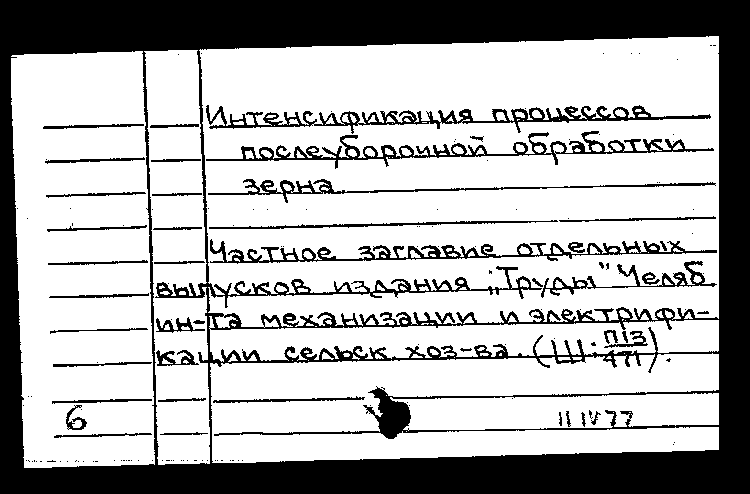 Интенсификация процессов
послеуборочной обработки
зерна.
Частное заглавие отдельных
выпусков издания "Труды" Челяб
ин-та механизации и электрифи-
кации сельск. хоз-ва. (Ш: П13/471).
6
11 IV 77